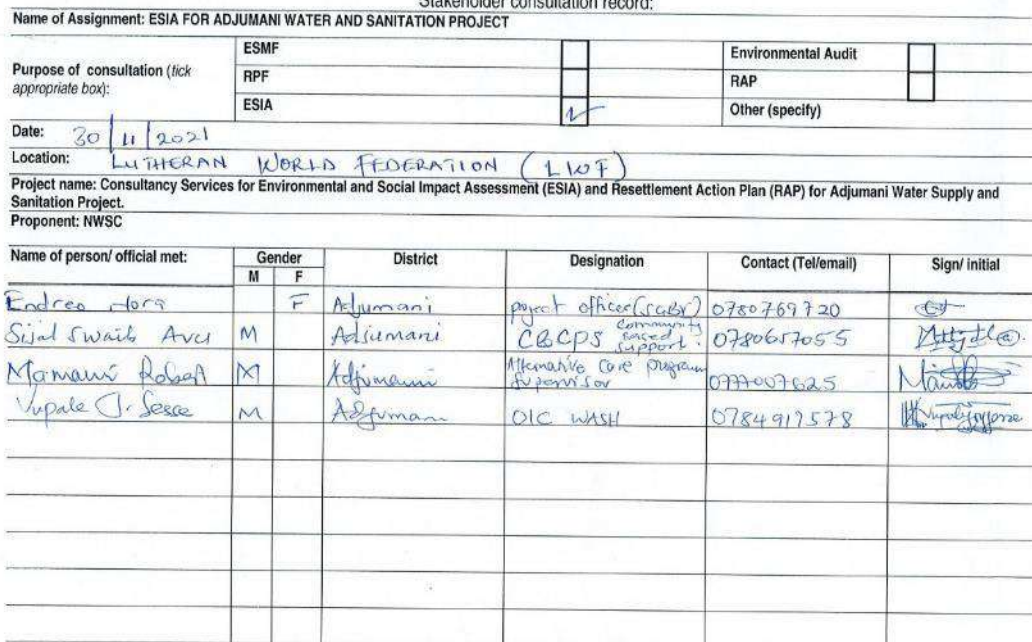 Stakeholder consultation record:
Name of Assignment: ESIA FOR ADJUMANI WATER AND SANITATION PROJECT
Purpose of consultation (tick appropriate box):
ESMF
RPF
ESIA
Environmental Audit
RAP
Other (specify)
Date: 30/11/2021
Location: LUTHERAN WORLD FEDERATION (LWF)
Project name: Consultancy Services for Environmental and Social Impact Assessment (ESIA) and Resettlement Action Plan (RAP) for Adjumani Water Supply and
Sanitation Project.
Proponent: NWSC
Name of person/ official met: Gender District Designation Contact (Tel/email) Sign/ initial
M F
Endreo F Adjumani project officer 0780769720
Swaib M Adjumani CBCPS Community based support 0780657055
Mamawi Robert M Adjumani Alternative Care program Supervisor 0777007625
Vupale M Adjumani OIC WASH 0784917578